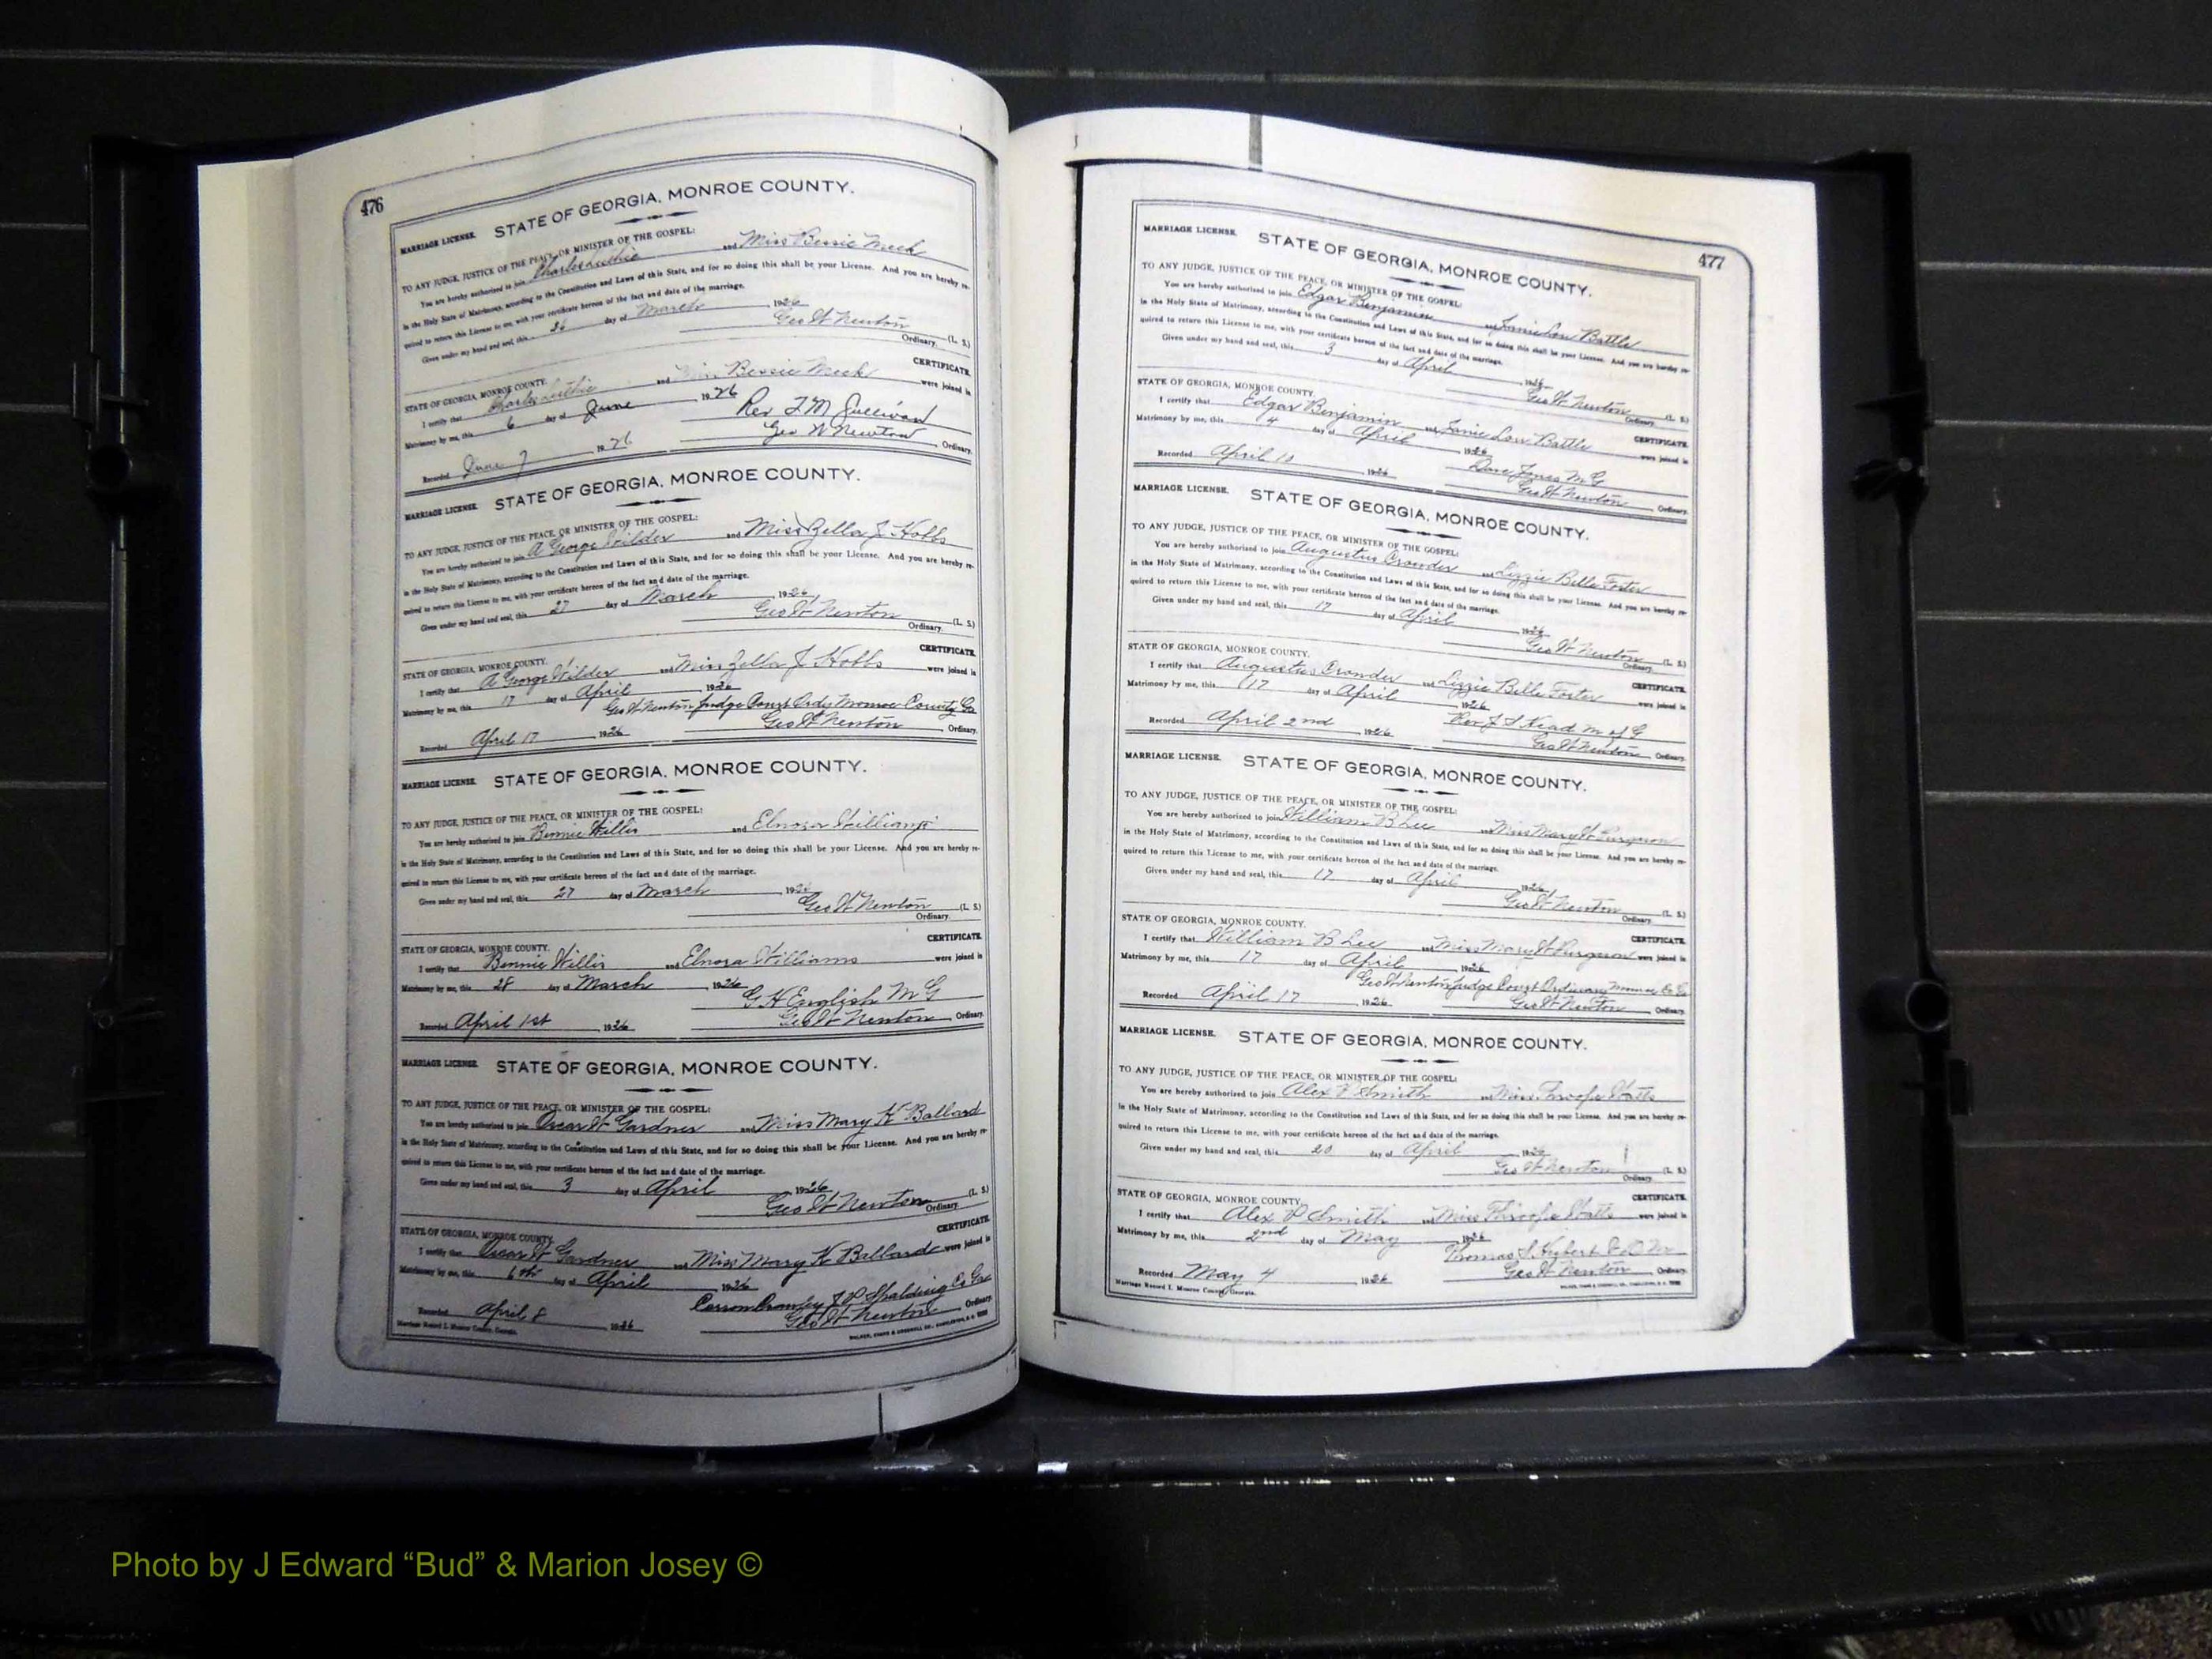 476
MARRIAGE LICENSE. STATE OF GEORGIA, MONROE COUNTY.
TO ANY JUDGE, JUSTICE OF THE PEACE, OR MINISTER OF THE GOSPEL:
You are hereby authorized to join Charles and Miss Bessie Meek
in the Holy State of Matrimony, according to the Constitution and Laws of this State, and for so doing this shall be your License. And you are hereby re-
quired to return this License to me, with your certificate hereon of the fact and date of the marriage.
Given under my hand and seal, this 26 day of March 1926
Geo W Newton (L. S.)
Ordinary.
STATE OF GEORGIA, MONROE COUNTY. CERTIFICATE.
I certify that Charles and Miss Bessie Meek were joined in
Matrimony by me, this 6 day of June 1926
Rev T M Sullivan
Recorded June 7 1926 Geo W Newton Ordinary.
MARRIAGE LICENSE. STATE OF GEORGIA, MONROE COUNTY.
TO ANY JUDGE, JUSTICE OF THE PEACE, OR MINISTER OF THE GOSPEL:
You are hereby authorized to join A George Wilder and Miss Zella J Hobbs
in the Holy State of Matrimony, according to the Constitution and Laws of this State, and for so doing this shall be your License. And you are hereby re-
quired to return this License to me, with your certificate hereon of the fact and date of the marriage.
Given under my hand and seal, this 27 day of March 1926
Geo W Newton (L. S.)
Ordinary.
STATE OF GEORGIA, MONROE COUNTY. CERTIFICATE.
I certify that A George Wilder and Miss Zella J Hobbs were joined in
Matrimony by me, this 17 day of April 1926
Geo W Newton Judge Court Ordy Monroe County Ga
Recorded April 17 1926 Geo W Newton Ordinary.
MARRIAGE LICENSE. STATE OF GEORGIA, MONROE COUNTY.
TO ANY JUDGE, JUSTICE OF THE PEACE, OR MINISTER OF THE GOSPEL:
You are hereby authorized to join Bennie Willis and Elnora Williams
in the Holy State of Matrimony, according to the Constitution and Laws of this State, and for so doing this shall be your License. And you are hereby re-
quired to return this License to me, with your certificate hereon of the fact and date of the marriage.
Given under my hand and seal, this 27 day of March 1926
Geo W Newton (L. S.)
Ordinary.
STATE OF GEORGIA, MONROE COUNTY. CERTIFICATE.
I certify that Bennie Willis and Elnora Williams were joined in
Matrimony by me, this 28 day of March 1926
G H English M G
Recorded April 1st 1926 Geo W Newton Ordinary.
MARRIAGE LICENSE. STATE OF GEORGIA, MONROE COUNTY.
TO ANY JUDGE, JUSTICE OF THE PEACE, OR MINISTER OF THE GOSPEL:
You are hereby authorized to join Oscar W Gardner and Miss Mary K Ballard
in the Holy State of Matrimony, according to the Constitution and Laws of this State, and for so doing this shall be your License. And you are hereby re-
quired to return this License to me, with your certificate hereon of the fact and date of the marriage.
Given under my hand and seal, this 3 day of April 1926
Geo W Newton (L. S.)
Ordinary.
STATE OF GEORGIA, MONROE COUNTY. CERTIFICATE.
I certify that Oscar W Gardner and Miss Mary K Ballard were joined in
Matrimony by me, this 6th day of April 1926
J P Spalding Co Ga
Recorded April 8 1926 Geo W Newton Ordinary.
Marriage Record I. Monroe County, Georgia.
477
MARRIAGE LICENSE. STATE OF GEORGIA, MONROE COUNTY.
TO ANY JUDGE, JUSTICE OF THE PEACE, OR MINISTER OF THE GOSPEL:
You are hereby authorized to join Edgar Benjamin and Janie Lou Battle
in the Holy State of Matrimony, according to the Constitution and Laws of this State, and for so doing this shall be your License. And you are hereby re-
quired to return this License to me, with your certificate hereon of the fact and date of the marriage.
Given under my hand and seal, this 3 day of April 1926
Geo W Newton (L. S.)
Ordinary.
STATE OF GEORGIA, MONROE COUNTY. CERTIFICATE.
I certify that Edgar Benjamin and Janie Lou Battle were joined in
Matrimony by me, this 4 day of April 1926
Dave Jones M G
Recorded April 10 1926 Geo W Newton Ordinary.
MARRIAGE LICENSE. STATE OF GEORGIA, MONROE COUNTY.
TO ANY JUDGE, JUSTICE OF THE PEACE, OR MINISTER OF THE GOSPEL:
You are hereby authorized to join Augustus Crowder and Lizzie Belle Foster
in the Holy State of Matrimony, according to the Constitution and Laws of this State, and for so doing this shall be your License. And you are hereby re-
quired to return this License to me, with your certificate hereon of the fact and date of the marriage.
Given under my hand and seal, this 17 day of April 1926
Geo W Newton (L. S.)
Ordinary.
STATE OF GEORGIA, MONROE COUNTY. CERTIFICATE.
I certify that Augustus Crowder and Lizzie Belle Foster were joined in
Matrimony by me, this 17 day of April 1926
Rev J S Head M of G
Recorded April 2nd 1926 Geo W Newton Ordinary.
MARRIAGE LICENSE. STATE OF GEORGIA, MONROE COUNTY.
TO ANY JUDGE, JUSTICE OF THE PEACE, OR MINISTER OF THE GOSPEL:
You are hereby authorized to join William B Lee and Miss Mary W
in the Holy State of Matrimony, according to the Constitution and Laws of this State, and for so doing this shall be your License. And you are hereby re-
quired to return this License to me, with your certificate hereon of the fact and date of the marriage.
Given under my hand and seal, this 17 day of April 1926
Geo W Newton (L. S.)
Ordinary.
STATE OF GEORGIA, MONROE COUNTY. CERTIFICATE.
I certify that William B Lee and Miss Mary W were joined in
Matrimony by me, this 17 day of April 1926
Geo W Newton Judge Court Ordinary Monroe Co Ga
Recorded April 17 1926 Geo W Newton Ordinary.
MARRIAGE LICENSE. STATE OF GEORGIA, MONROE COUNTY.
TO ANY JUDGE, JUSTICE OF THE PEACE, OR MINISTER OF THE GOSPEL:
You are hereby authorized to join Alex P Smith and Miss Watts
in the Holy State of Matrimony, according to the Constitution and Laws of this State, and for so doing this shall be your License. And you are hereby re-
quired to return this License to me, with your certificate hereon of the fact and date of the marriage.
Given under my hand and seal, this 20 day of April 1926
Geo W Newton (L. S.)
Ordinary.
STATE OF GEORGIA, MONROE COUNTY. CERTIFICATE.
I certify that Alex P Smith and Miss Watts were joined in
Matrimony by me, this 2nd day of May 1926
Thomas S
Recorded May 4 1926 Geo W Newton Ordinary.
Marriage Record I. Monroe County, Georgia.
Photo by J Edward “Bud” & Marion Josey ©